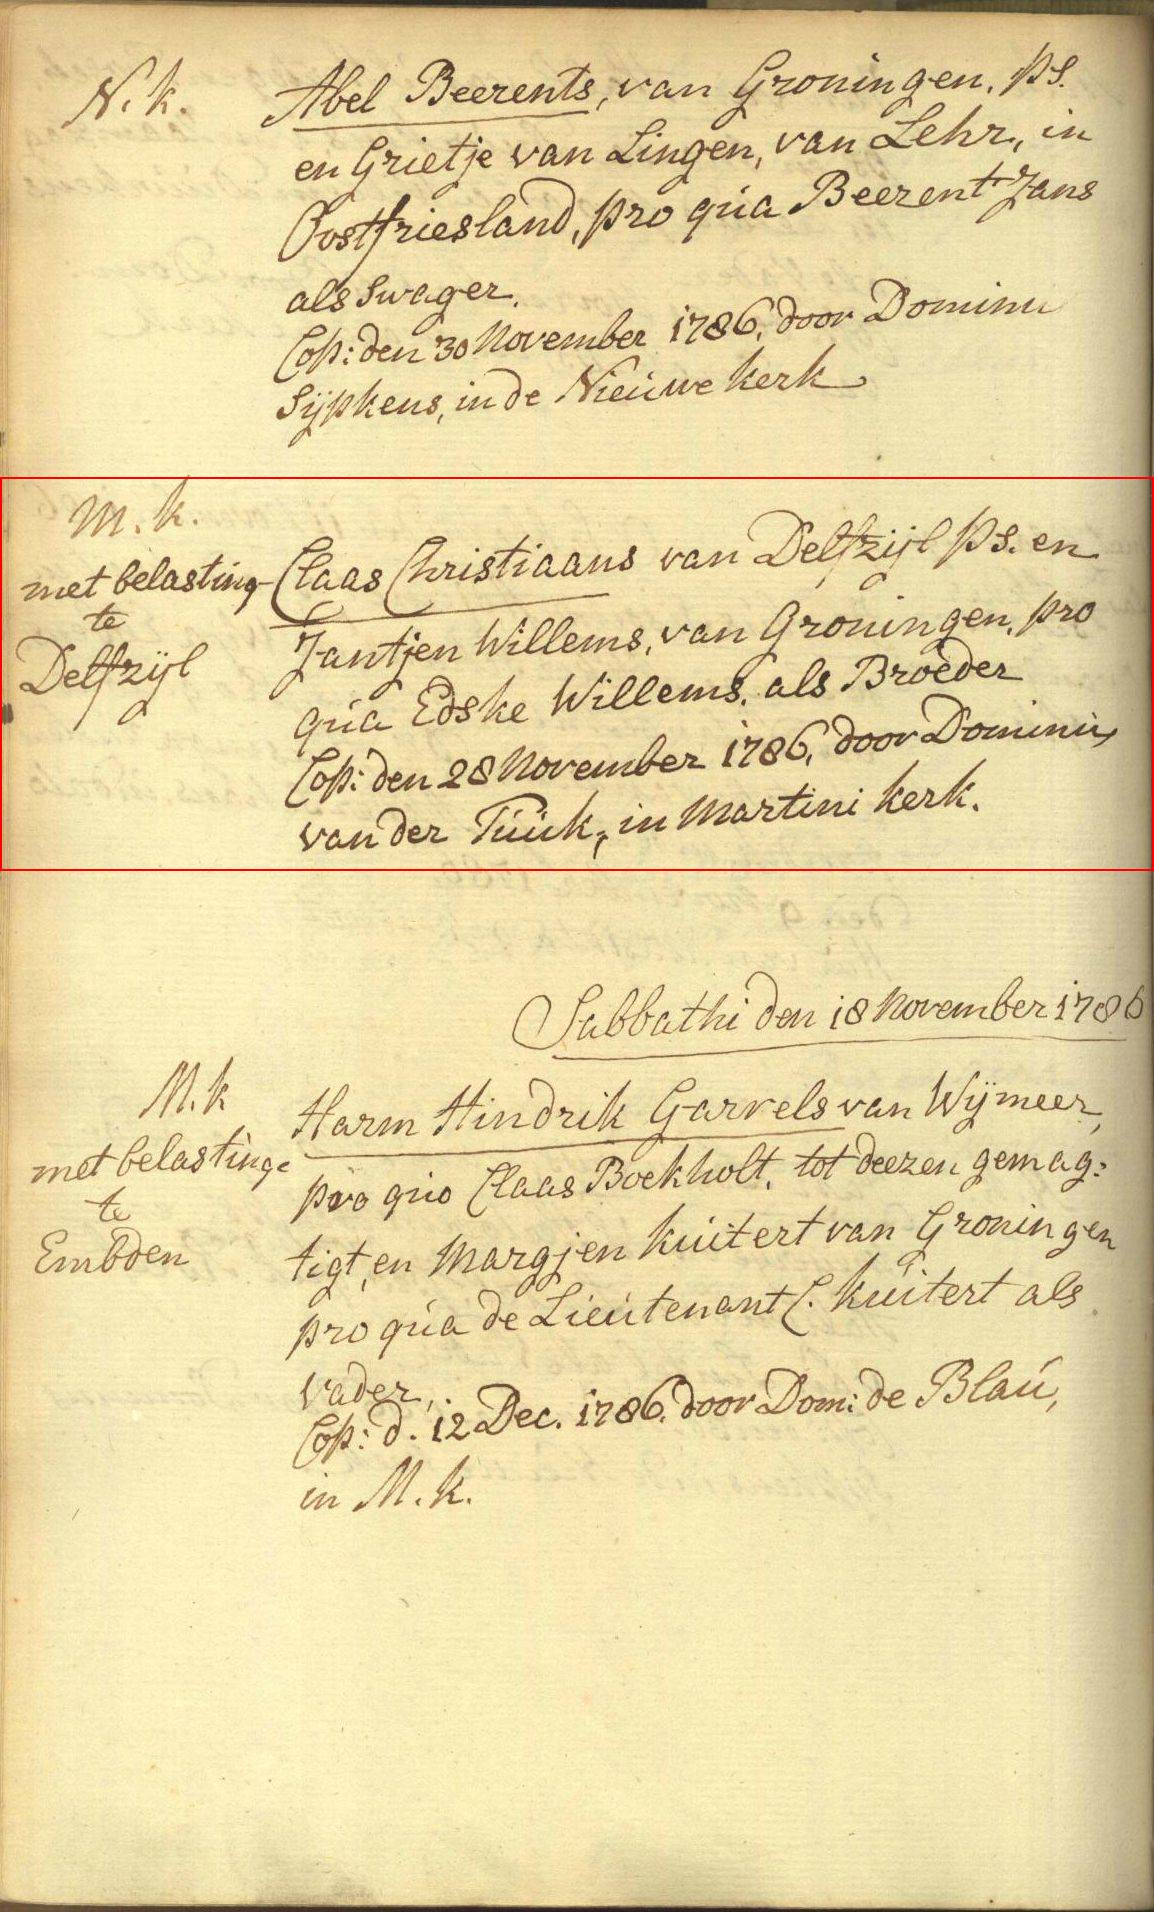 N. k.
Abel Beerents, van Groningen, p s.
en Grietje van Lingen, van Lehr, in
Oostfriesland, pro qúa Beerent Jans
als Swager.
Cop: den 30 November 1786, door Dominu
Sÿpkens, in de Nieúwe kerk
M. k.
met belasting
te
Delfzÿl
Claas Christiaans van Delfzijl p s. en
Jantjen Willems, van Groningen, pro
qúa Edske Willems, als Broeder
Cop: den 28 November 1786, door Dominús
van der Túúk, in Martini kerk.
Sabbathi den 18 November 1786
M. k
met belasting
te
Embden
Harm Hindrik Garrels van Wÿmeer,
pro quo Claas Boekholt, tot deezen gemag:
tigt, en Margjen kúitert van Groningen
pro qúa de Lieútenant C. kúitert als
vader,
Cop: d. 12 Dec. 1786. door Dom: de Blaú,
in M. k.